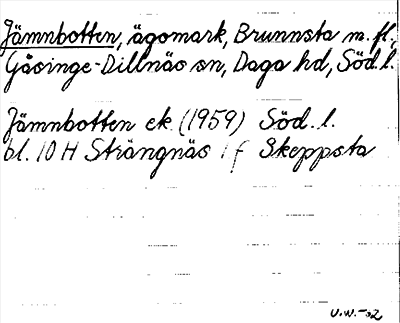 Jämnbotten, ägomark, Brunnsta m. fl.,
Gåsinge-Dillnäs sn, Daga hd, Söd. l.
Jämnbotten ek. (1959) Söd. l.
bl. 10 H Strängnäs 1 f Skeppsta
U.W.-52